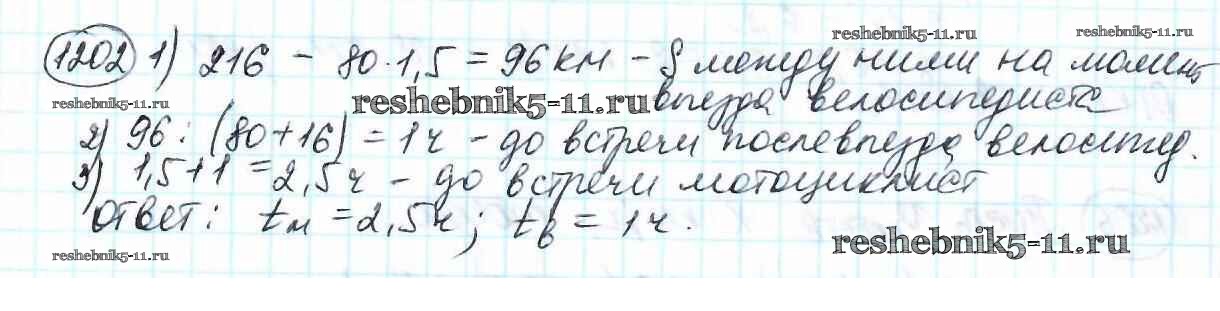 reshebnik5-11.ru reshebnik5-11.ru
1202 1) 216 - 80·1,5 = 96 км - S между ними на момент
reshebnik5-11.ru reshebnik5-11.ru выезда велосипедиста
2) 96 : (80+16) = 1ч - до встречи после выезда велосипед.
3) 1,5+1 = 2,5ч - до встречи мотоциклист
Ответ: tм = 2,5ч; tв = 1ч.
reshebnik5-11.ru reshebnik5-11.ru